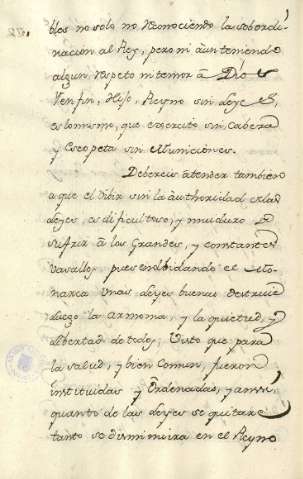 bles no solo no reconociendo la sobordi-
nacion al Rey, pero ni aun teniendo
algun respeto ni temor â Dios
Y en fin, Hijo, Reyno sin Leyes,
es lo mismo, que exercito sin Cabeza
y Escopeta sin Municiones.
Debereis âtender tambien
a que el vibir sin la âuthoridad de las
Leyes, es dificultoso, y mui duro de
sufrir â los Grandes, y constantes
vasallos, pues embidando el Mo-
narca unas Leyes buenas destruie
luego la Armonia, y la quietud, y
libertad de todos, Visto que para
la salud, y bien Comun, fueron
instituidas y Ordenadas, y ansi
quanto de las Leyes se quitare
tanto se disminuira en el Reyno